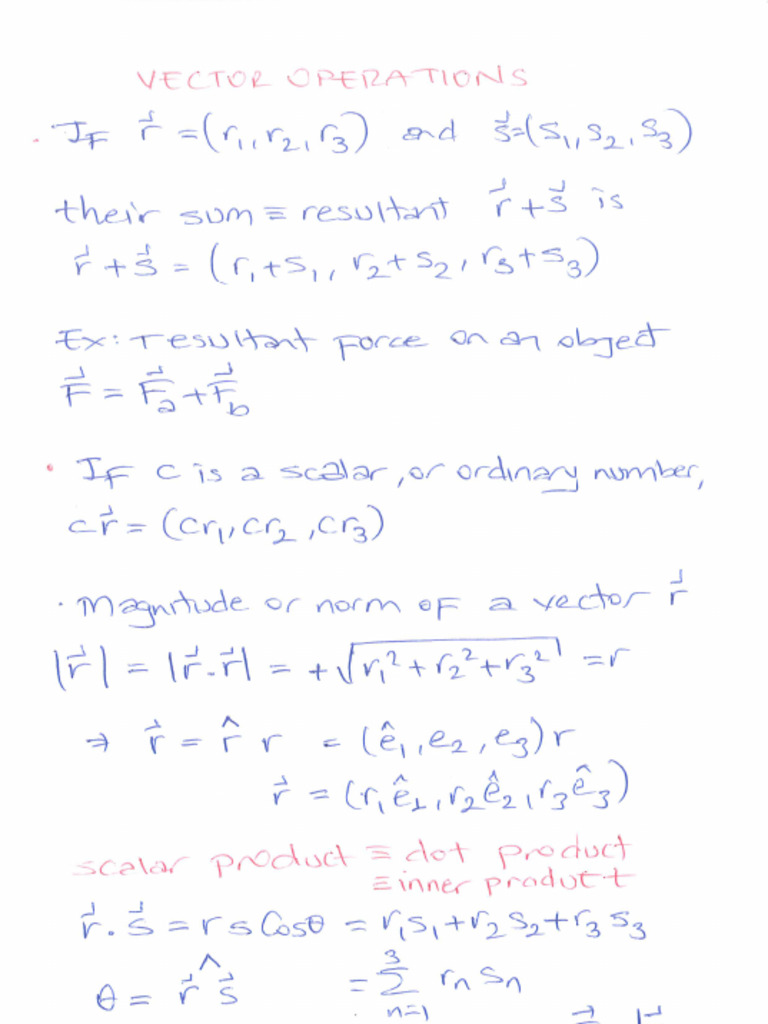 VECTOR OPERATIONS
· IF r⃗ = (r₁, r₂, r₃) and s⃗ = (s₁, s₂, s₃)
their sum ≡ resultant r⃗ + s⃗ is
r⃗ + s⃗ = (r₁ + s₁, r₂ + s₂, r₃ + s₃)
Ex: resultant force on an object
F⃗ = F⃗a + F⃗b
· IF c is a scalar, or ordinary number,
c r⃗ = (cr₁, cr₂, cr₃)
· Magnitude or norm of a vector r⃗
|r⃗| = |r⃗ . r⃗| = +√(r₁² + r₂² + r₃²) = r
⇒ r⃗ = r̂ r = (ê₁, e₂, e₃) r
r⃗ = (r₁ê₁, r₂ê₂, r₃ê₃)
scalar product ≡ dot product
≡ inner product
r⃗ . s⃗ = r s Cosθ = r₁s₁ + r₂s₂ + r₃s₃
θ = r⃗ ^ s⃗ = ∑ₙ₌₁³ rₙ sₙ